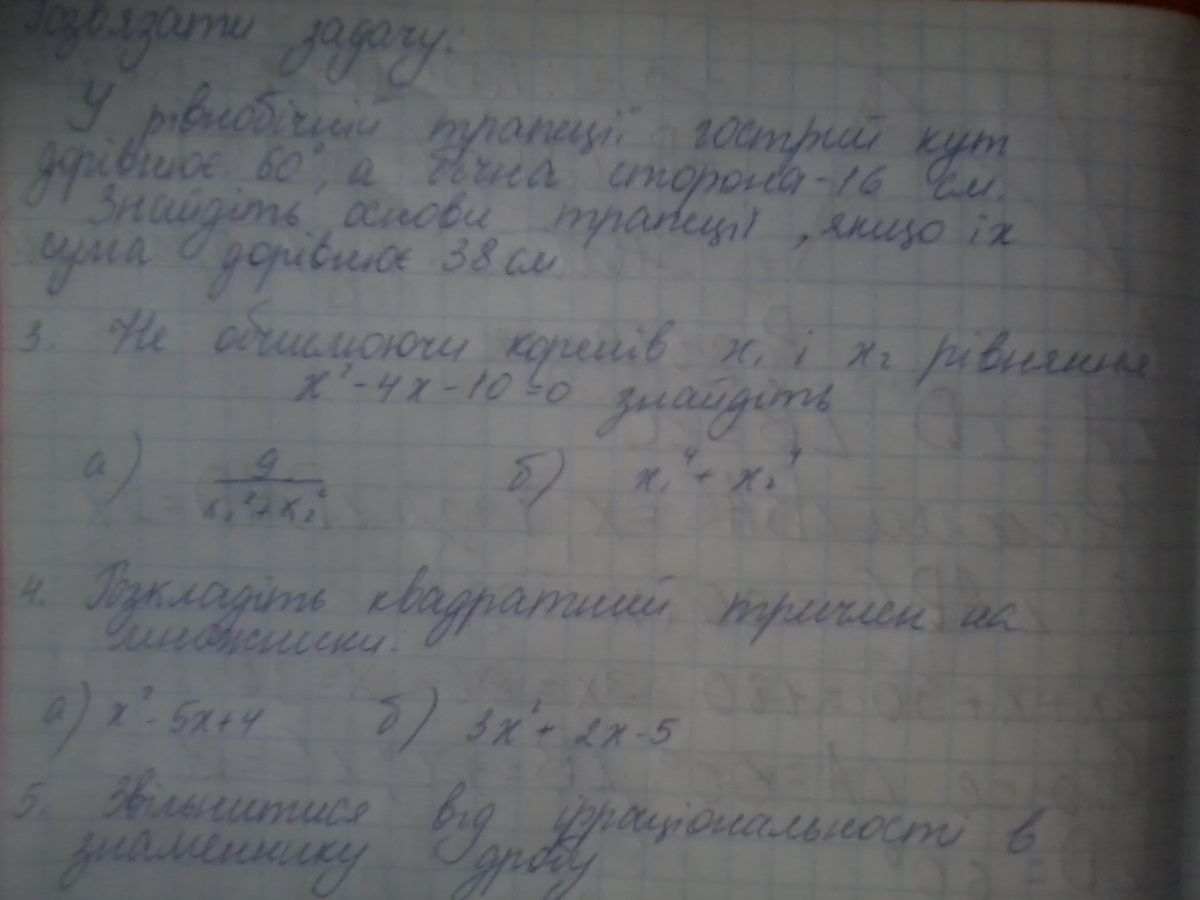 Розвязати задачу.
У рівнобічній трапеції гострий кут
дорівнює 60°, а бічна сторона - 16 см.
Знайдіть основи трапеції, якщо їх
сума дорівнює 38 см
3. Не обчислюючи коренів x₁ і x₂ рівняння
x² - 4x - 10 = 0 знайдіть
а) 9/(x₁² + x₂²) б) x₁⁴ + x₂⁴
4. Розкладіть квадратний тричлен на
множники.
а) x² - 5x + 4 б) 3x² + 2x - 5
5. Звільнитися від ірраціональності в
знаменнику дробу